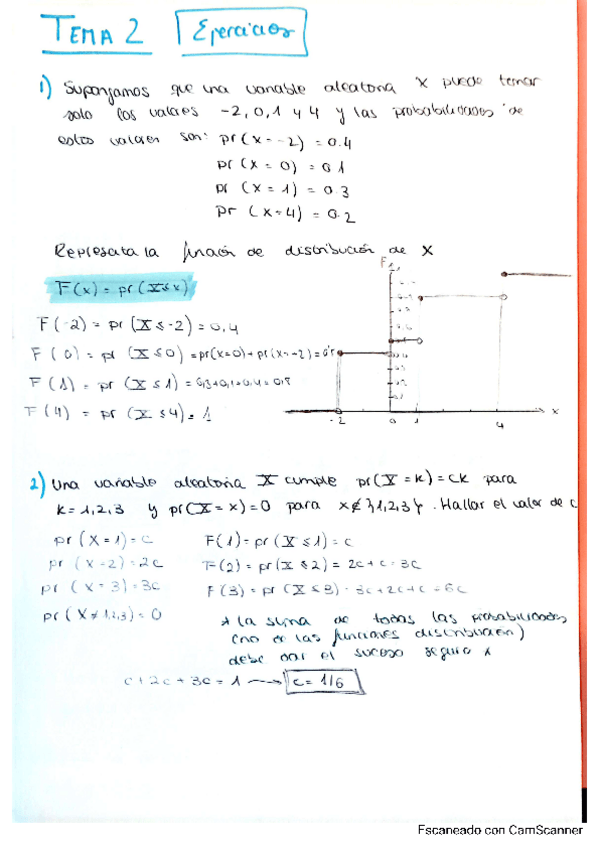 TEMA 2 Ejercicios
1) Supongamos que una variable aleatoria X puede tomar
solo los valores -2, 0, 1 y 4 y las probabilidades de
estos valores son: pr(X=-2) = 0.4
pr (X = 0) = 0.1
pr (X = 1) = 0.3
pr (X=4) = 0.2
Representa la función de distribución de X
F(x) = pr(X≤x)
F(-2) = pr (X ≤ -2) = 0,4
F (0) = pr (X ≤ 0) = pr(x=0)+pr(x=-2)=0'5
F (1) = pr (X ≤ 1) = 0,3+0,1+0,4=0,8
F (4) = pr (X ≤ 4) = 1
F
-2 0 1 4 x
2) Una variable aleatoria X cumple pr(X=k)=ck para
k=1,2,3 y pr(X=x)=0 para x∉}1,2,3}. Hallar el valor de c
pr (X=1)=c F(1)=pr(X≤1)=c
pr (x=2)=2c F(2)=pr(X≤2)=2c+c=3c
pr (x=3)=3c F(3)=pr(X≤3)=3c+2c+c=6c
pr (X≠1,2,3)=0 * la suma de todas las probabilidades
(no en las funciones distribución)
debe dar el suceso seguro *
c+2c+3c=1 → c=1/6
Escaneado con CamScanner